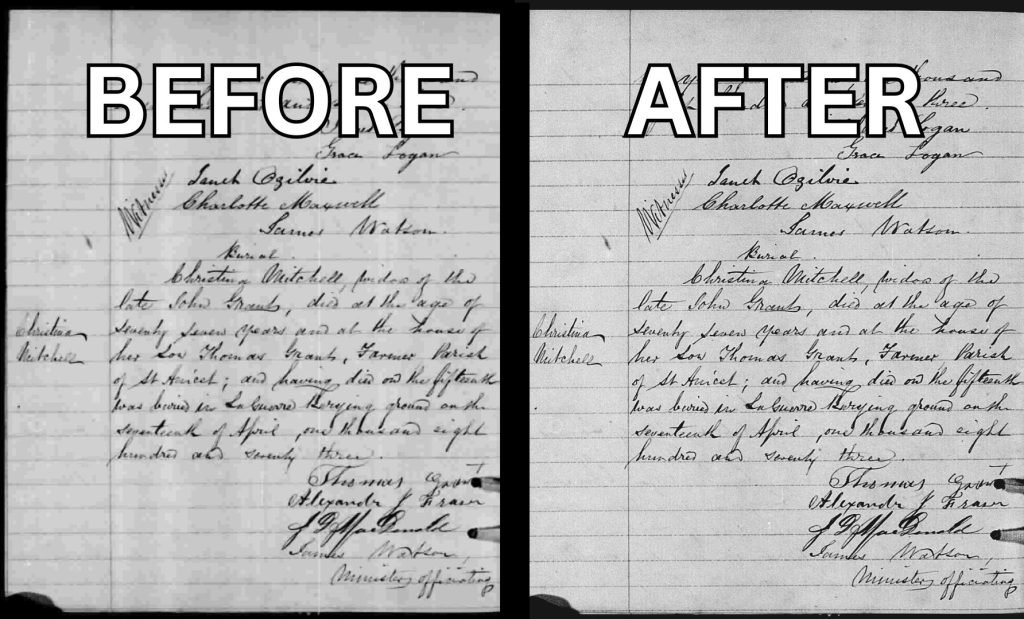 BEFORE
Grace Logan
Witnesses
Janet Ogilvie
Charlotte Maxwell
James Watson.
Burial.
Christina Mitchell, widow of the
late John Grant, died at the age of
Christina
Mitchell
seventy seven years and at the house of
her son Thomas Grant, Farmer Parish
of St Anicet; and having died on the fifteenth
was buried in LaGuerre Burying ground on the
seventeenth of April, one thousand eight
hundred and seventy three.
Thomas Grant
Alexander J Fraser
J D MacDonald
James Watson,
Minister officiating
AFTER
thousand
three.
Logan
Grace Logan
Witnesses
Janet Ogilvie
Charlotte Maxwell
James Watson.
Burial.
Christina Mitchell, widow of the
late John Grant, died at the age of
Christina
Mitchell
seventy seven years and at the house of
her son Thomas Grant, Farmer Parish
of St Anicet; and having died on the fifteenth
was buried in LaGuerre Burying ground on the
seventeenth of April, one thousand eight
hundred and seventy three.
Thomas Grant
Alexander J Fraser
J D MacDonald
James Watson,
Minister officiating